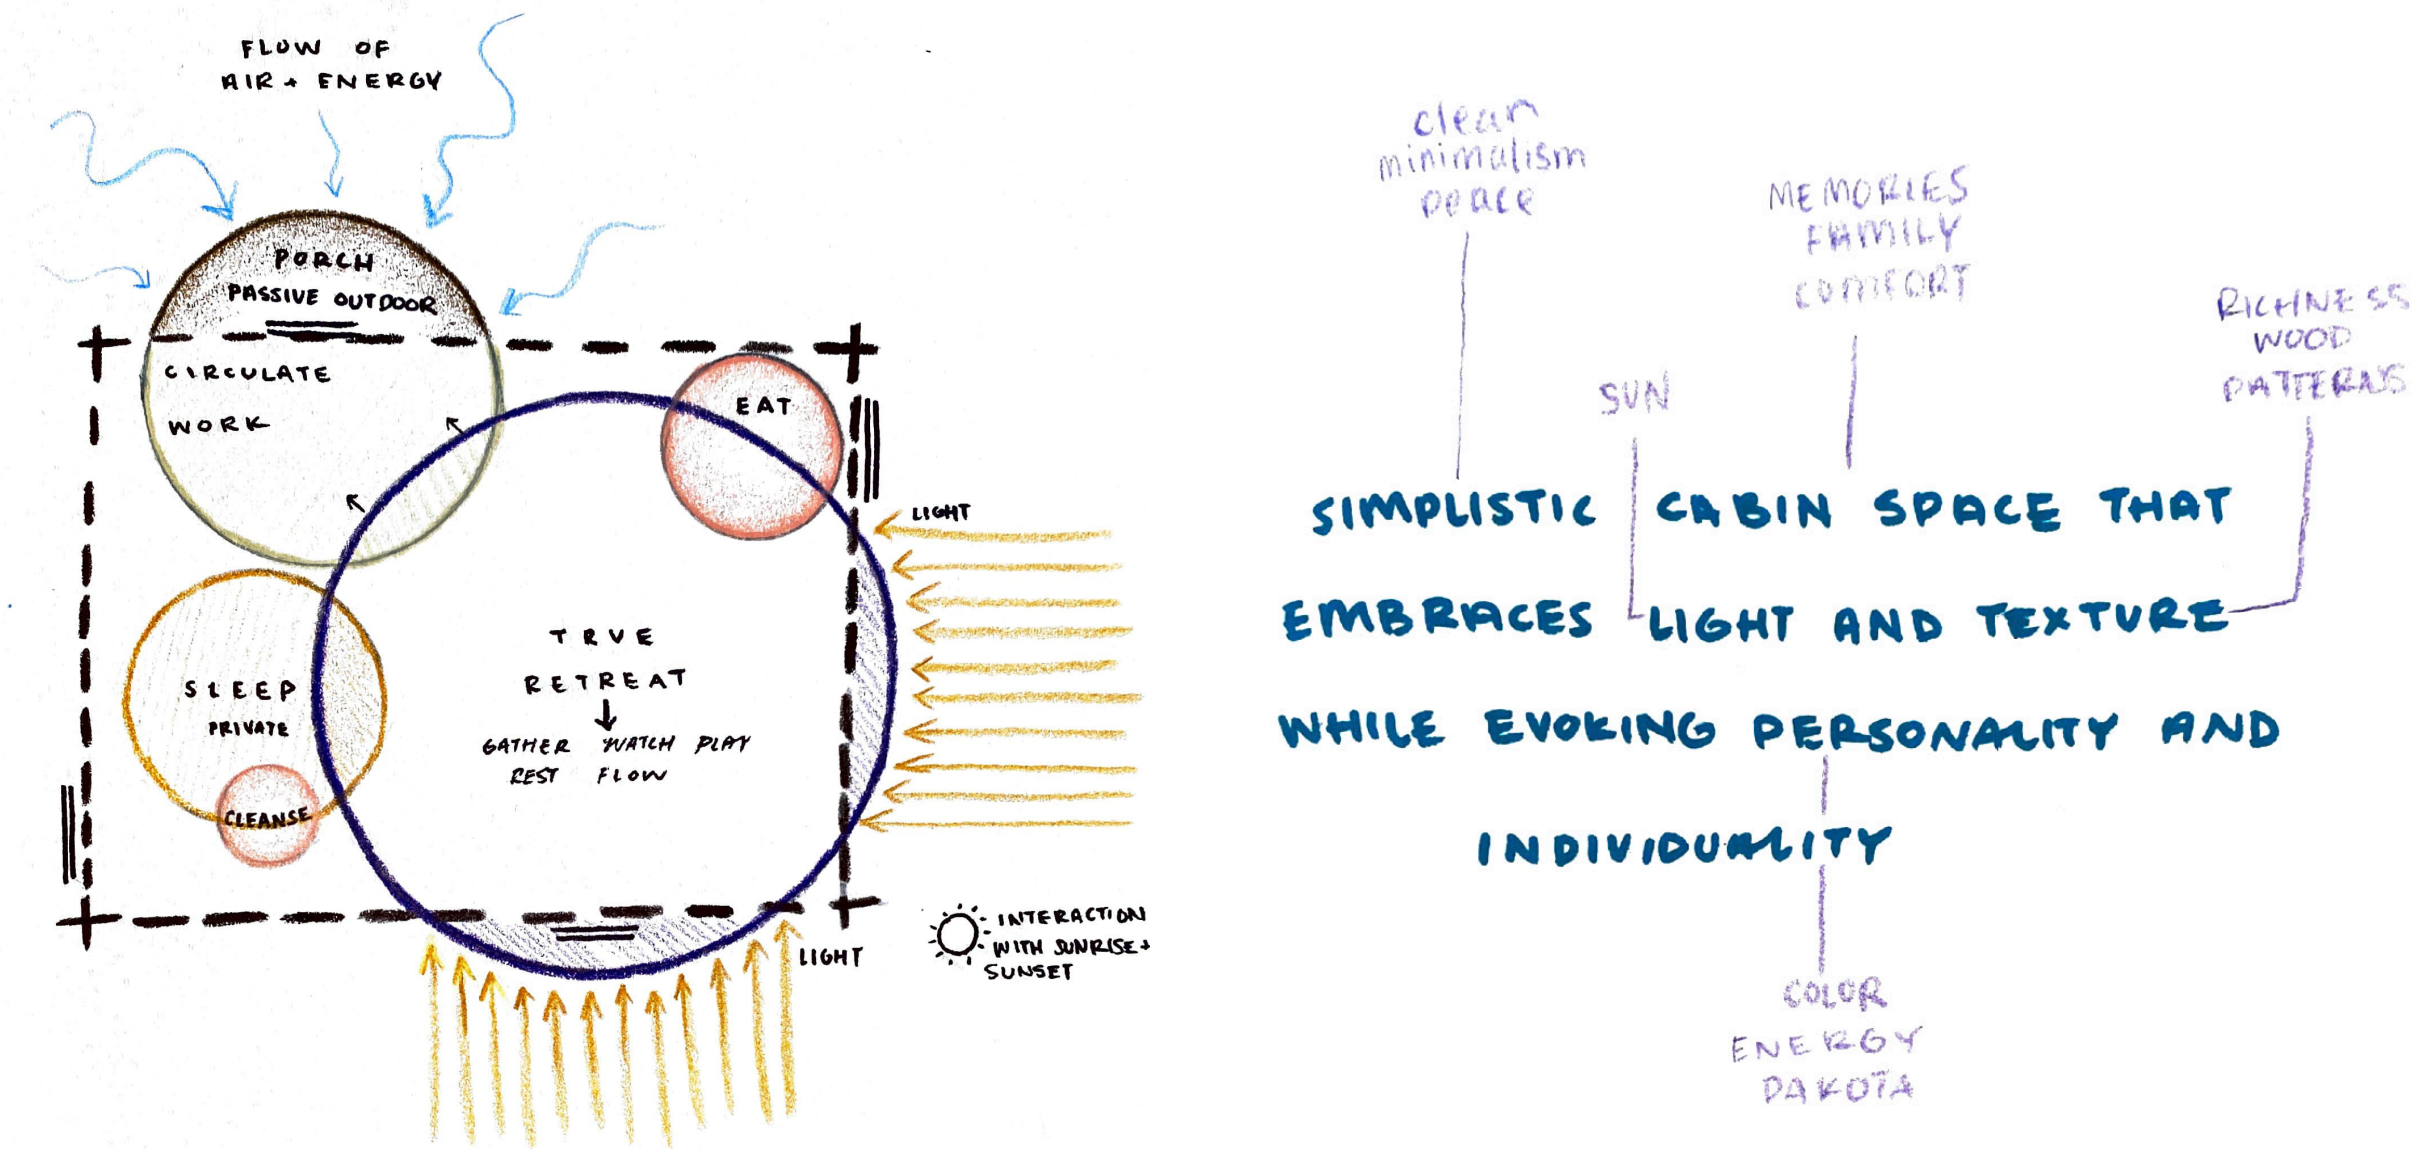 FLOW OF
AIR + ENERGY
PORCH
PASSIVE OUTDOOR
CIRCULATE
WORK
EAT
LIGHT
TRVE
RETREAT
GATHER WATCH PLAY
REST FLOW
SLEEP
PRIVATE
CLEANSE
LIGHT
INTERACTION
WITH SUNRISE +
SUNSET
clean
minimalism
peace
MEMORIES
FAMILY
COMFORT
RICHNESS
WOOD
PATTERNS
SUN
SIMPLISTIC CABIN SPACE THAT
EMBRACES LIGHT AND TEXTURE
WHILE EVOKING PERSONALITY AND
INDIVIDUALITY
COLOR
ENERGY
DAKOTA